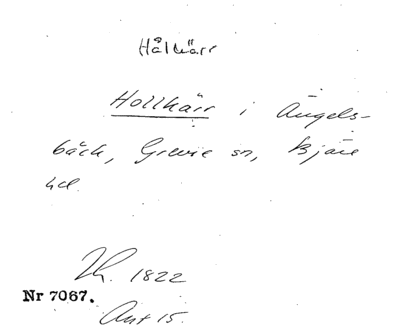 Hålkärr
Hollkärr i Ängels-
bäck, Grevie sn, Bjäre
hd.
Th. 1822
Nr 7067.
Ant 15.